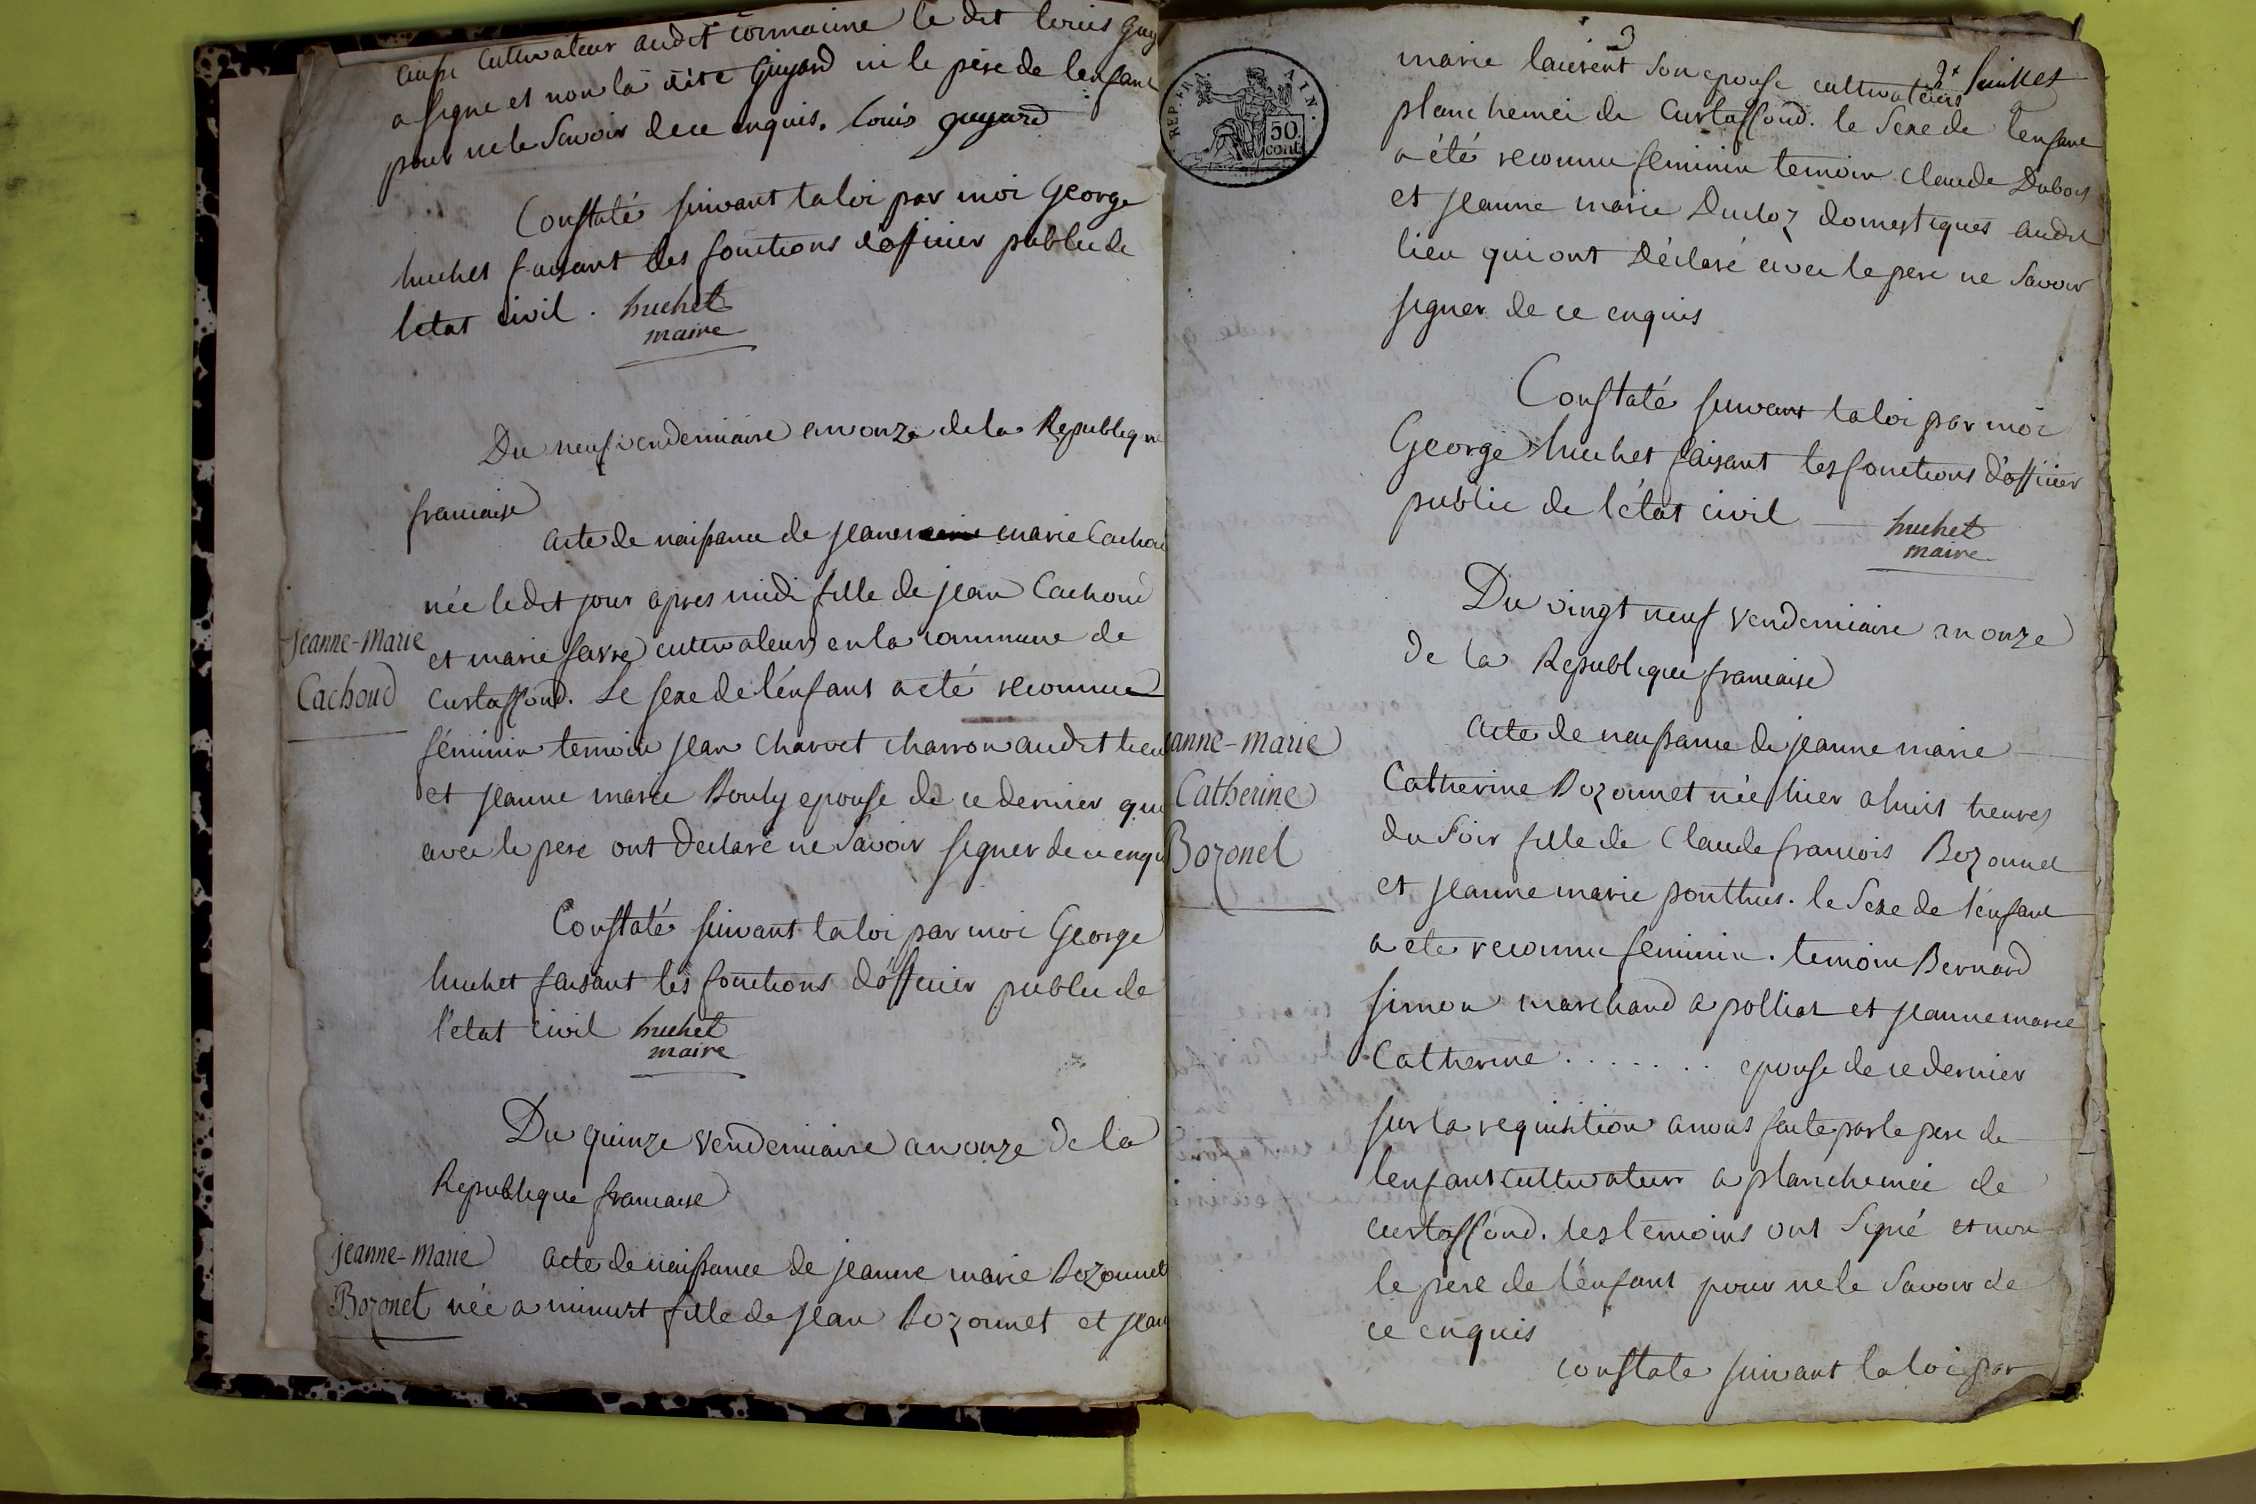 aussi cultivateur audit Cormacine le dit louis Guy
a signé et non la dite Guyard ni le père de lenfant
pour ne le Savoir de ce enquis. Louis guyard
Constaté suivant la loi par moi George
huchet faisant les fonctions d'officier public de
letat civil . huchet
maire
Du neuf vendemiaire an onze de la Republique
francaise
acte de naissance de jeanne marie Cachou
née ledit jour apres midi fille de jean Cachoud
jeanne-marie
et marie favre cultivateurs en la commune de
Cachoud
Curtaffond. Le sexe de l'enfant a été reconnue
féminin temoin jean charvet charron audit lieu
et jeanne marie Bouly epouse de ce dernier qui
avec le pere ont declaré ne Savoir signer de ce enqu
Constaté suivant la loi par moi George
huchet faisant les fonctions d'officier public de
l'etat civil huchet
maire
Du quinze vendemiaire an onze de la
Republique francaise
jeanne-marie
acte de naissance de jeanne marie Bozonnet
Bozonet
née a minuit fille de jean Bozonnet et jean
3
2e feuillet
REP. FRA. AIN.
50
cent.
marie laurent son epouse cultivateurs
planchemei de Curtaffond. le Sexe de l'enfant
a été reconnu feminin temoin claude Dubois
et jeanne marie Ducloz domestiques audit
lieu qui ont Déclaré avec le pere ne Savoir
signer de ce enquis
Constaté suivant la loi par moi
George huchet faisant les fonctions d'officier
public de l'état civil huchet
maire
Du vingt neuf vendemiaire an onze
de la Republique francaise
acte de naissance de jeanne marie
anne-marie
Catherine
Bozonet
Catherine Bozonnet née hier a huit heures
du Soir fille de Claude francois Bozonnet
et jeanne marie ponthus. le Sexe de l'enfant
a ete reconnu feminin. temoin Bernard
simon marchand a polliat et jeanne marie
Catherine . . . . . . . epouse de ce dernier
sur la requisition a nous faite par le pere de
lenfant cultivateur a planchemei de
curtaffond. les temoins ont Signé et non
le pere de l'enfant pour ne le Savoir de
ce enquis
constate suivant la loi par